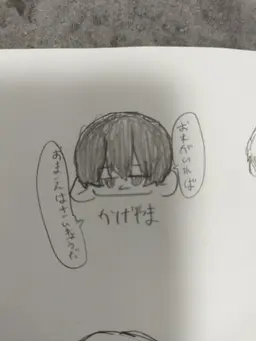 おれがいれば
おまえはさいきょうだ
かげやま